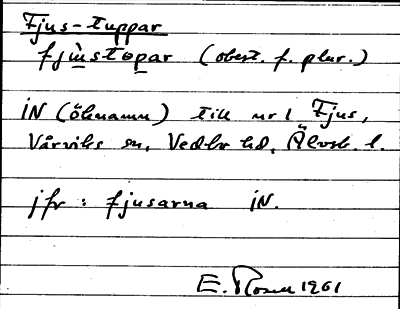 Fjus-tuppar
fjùstopar (obest. f. plur.)
iN (öknamn) till nr 1 Fjus,
Vårviks sn, Vedbo hd, Älvsb. l.
jfr : fjusarna iN.
E. Rosen 1961